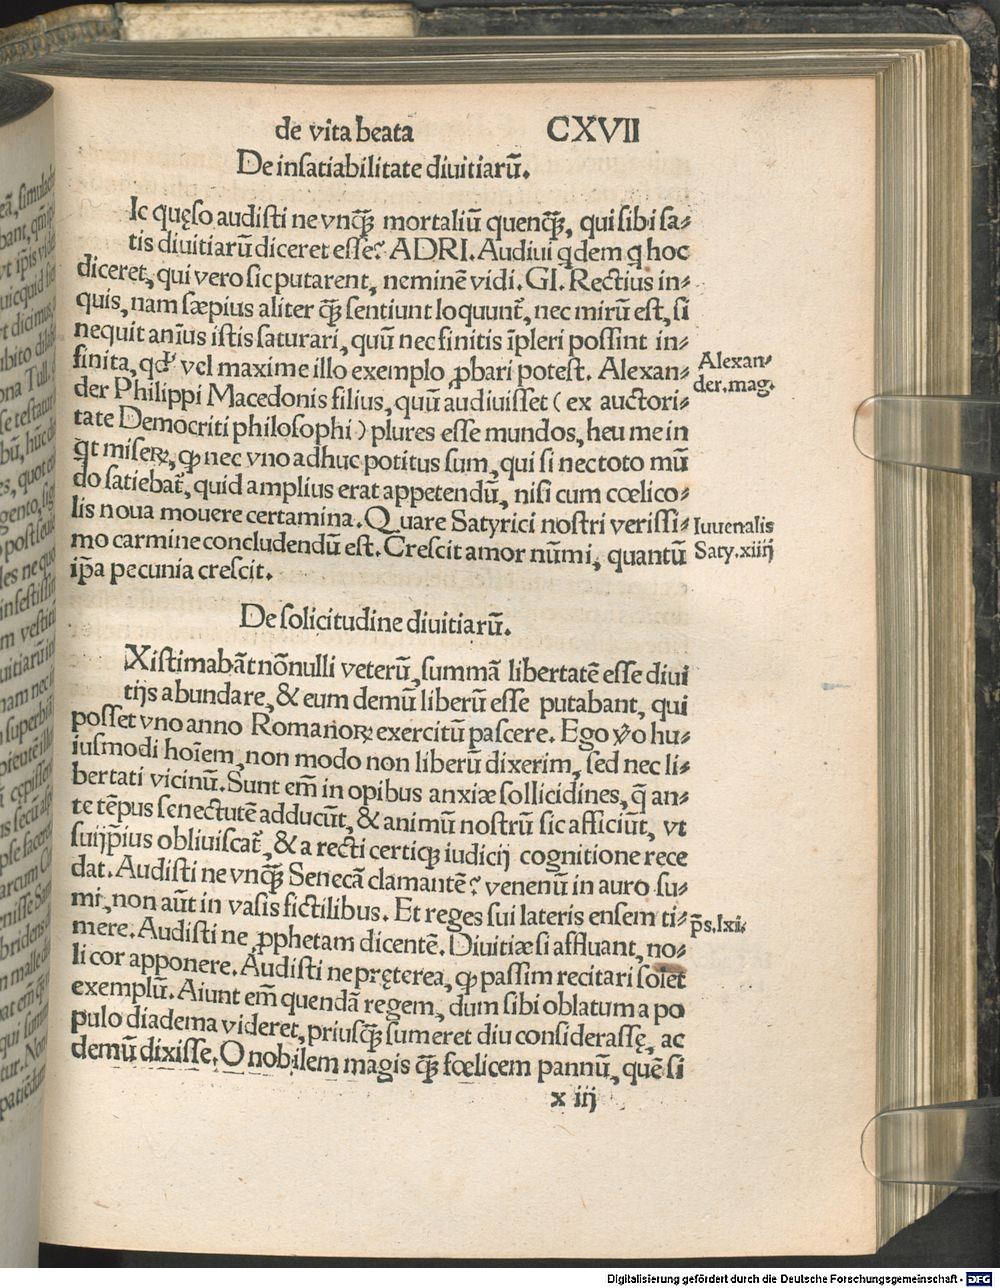 de vita beata CXVII
De insatiabilitate diuitiarũ.
Ic quęso audisti ne vnq̃ꝫ mortaliũ quenq̃ꝫ, qui sibi sa⸗
tis diuitiarũ diceret esse? ADRI. Audiui qdem q hoc
diceret, qui vero sic putarent, neminẽ vidi. GI. Rectius in⸗
quis, nam sæpius aliter q̃ꝫ sentiunt loquunt᷑, nec mirũ est, si
nequit anĩus istis saturari, quũ nec finitis ĩpleri possint in⸗
finita, qđ vel maxime illo exemplo ꝓbari potest. Alexan⸗
der Philippi Macedonis filius, quũ audiuisset (ex auctori⸗
tate Democriti philosophi) plures esse mundos, heu me in
qt miserꝝ, ꝙ nec vno adhuc potitus sum, qui si nec toto mũ
do satiebat᷑, quid amplius erat appetendũ, nisi cum cœlico⸗
lis noua mouere certamina. Quare Satyrici nostri verissi⸗
mo carmine concludendũ est. Crescit amor nũmi, quantũ
ip̃a pecunia crescit.
Alexan⸗
der. mag.
Iuuenalis
Saty. xiiij
De solicitudine diuitiarũ.
Xistimabãt nõnulli veterũ, summã libertatẽ esse diui
tijs abundare, & eum demũ liberũ esse putabant, qui
posset vno anno Romanorꝝ exercitũ pascere. Ego v̊o hu⸗
iusmodi hoĩem, non modo non liberũ dixerim, sed nec li⸗
bertati vicinũ. Sunt em̃ in opibus anxiæ sollicidines, q̃ an⸗
te tẽpus senectutẽ adducũt, & animũ nostrũ sic afficiũt, vt
suijp̃ius obliuiscat᷑, & a recti certiqꝫ iudicij cognitione rece
dat. Audisti ne vnq̃ꝫ Senecã clamantẽ? venenũ in auro su⸗
mi, non aũt in vasis fictilibus. Et reges sui lateris ensem ti⸗
mere. Audisti ne ꝓphetam dicentẽ. Diuitiæ si affluant, no⸗
li cor apponere. Audisti ne pręterea, ꝙ passim recitari solet
exemplũ. Aiunt em̃ quendã regem, dum sibi oblatum a po
pulo diadema videret, priusq̃ꝫ sumeret diu considerassę, ac
demũ dixisse. O nobilem magis q̃ꝫ fœlicem pannũ, quẽ si
p̃s. lxi.
x iij
Digitalisierung gefördert durch die Deutsche Forschungsgemeinschaft - DFG